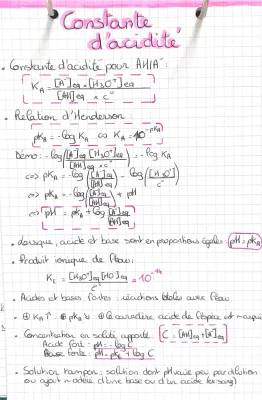 Constante
d'acidité
• Constante d'acidité pour AH/A⁻:
K_A = [A⁻]eq × [H₃O⁺]eq / [AH]eq × c°
• Relation d'Henderson
pK_A = -log K_A ⇔ K_A = 10^-pK_A
Démo: -log([A⁻]eq [H₃O⁺]eq / [AH]eq × c°) = -log K_A
⇔ pK_A = -log([A⁻]eq / [AH]eq) - log([H₃O⁺] / c°)
⇔ pK_A = -log([A⁻]eq / [AH]eq) + pH
⇔ pH = pK_A + log [A⁻]eq / [AH]eq
• Lorsque, acide et base sont en proportions égales: pH = pK_A
• Produit ionique de l'eau
K_E = [H₃O⁺]eq [HO⁻]eq / c° = 10^-14
• Acides et bases fortes: réactions totales avec l'eau
• ⊕ K_A ↑ ⊕ pK_A ↘ ⊕ le caractère acide de l'espèce est marqué
• Concentration en soluté apporté C = [AH]eq + [A⁻]eq
Acide fort: pH = -log C
Base forte: pH = pK_E + log C
• Solution tampon: solution dont pH varie peu par dilution
ou ajout modéré d'une base ou d'un acide (ex: sang)